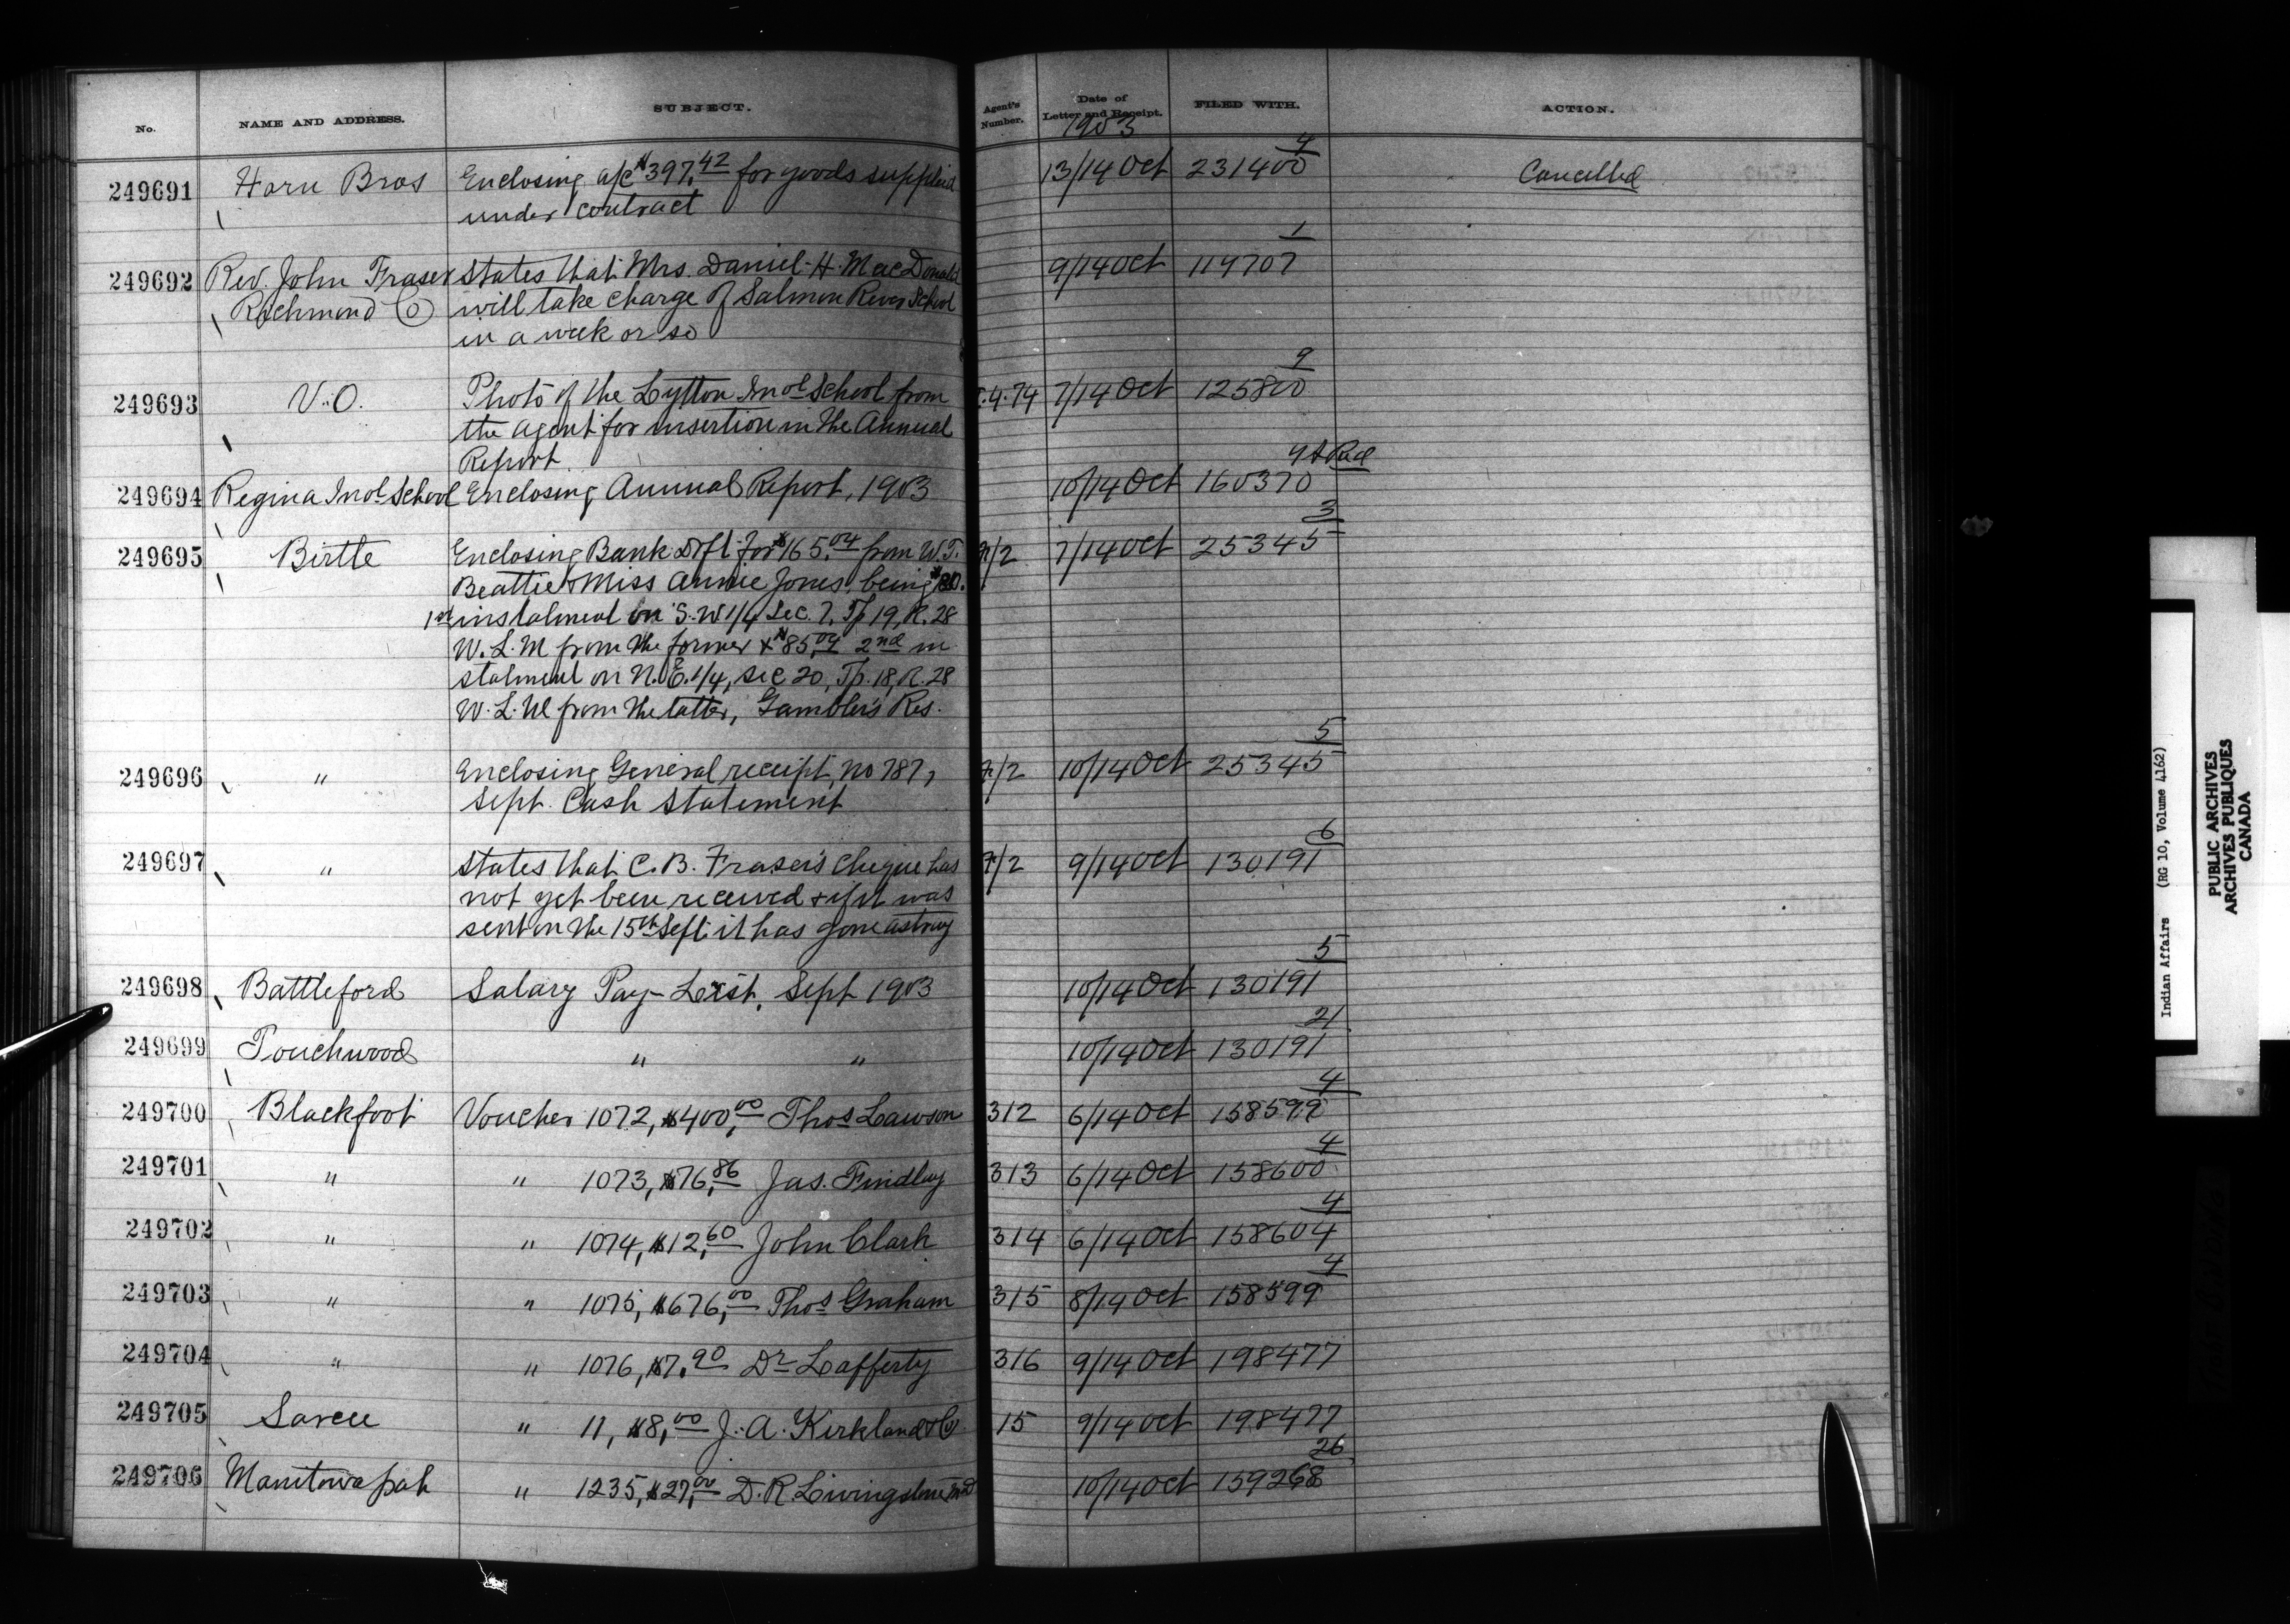 No. NAME AND ADDRESS. SUBJECT. Agent's Number. Date of Letter and Receipt. FILED WITH. ACTION.
1903
249691 Horn Bros Enclosing a/c $397.42 for goods supplied 13/14 Oct 231400 4 Cancelled
under contract
249692 Rev. John Fraser States that Mrs. Daniel H. MacDonald 9/14 Oct 119707 1
Richmond Co will take charge of Salmon River School
in a week or so
249693 V.O. Photo of the Lytton Indl School from 7/14 Oct 125800 9
the agent for insertion in the Annual
Report
249694 Regina Indl School Enclosing Annual Report, 1903 10/14 Oct 160370
249695 Birtle Enclosing Bank Dft for $165.04 from W.J. 7/14 Oct 25345 3
Beattie & Miss Annie Jones, being $80.
1st instalment on S.W 1/4 Sec. 7, Tp 19, R. 28
W.L.M from the former & $85.04 2nd in
stalment on N.E. 1/4, Sec 20, Tp. 18, R. 28
W.L.M from the latter, Gambler's Res.
249696 " Enclosing General receipt, No 787, 10/14 Oct 25345 5
Sept. Cash Statement
249697 " States that C. B. Fraser's cheque has 9/14 Oct 130191 6
not yet been received & if it was
sent on the 15th Sept. it has gone astray
249698 Battleford Salary Pay-List, Sept 1903 10/14 Oct 130191 5
249699 Touchwood " " 10/14 Oct 130191 21
249700 Blackfoot Voucher 1072, $400.00 Thos Lawson 312 6/14 Oct 158599 4
249701 " " 1073, $76.86 Jas. Findlay 313 6/14 Oct 158600 4
249702 " " 1074, $12.60 John Clark 314 6/14 Oct 158604 4
249703 " " 1075, $676.00 Thos Graham 315 8/14 Oct 158599 4
249704 " " 1076, $7.90 Dr Lafferty 316 9/14 Oct 198477
249705 Sarcee " 11, $8.00 J. A. Kirkland & Co 15 9/14 Oct 198477
249706 Manitowapah " 1235, $27.00 D. R. Livingstone MD 10/14 Oct 159268 26
Indian Affairs (RG 10, Volume 4162)
PUBLIC ARCHIVES
ARCHIVES PUBLIQUES
CANADA